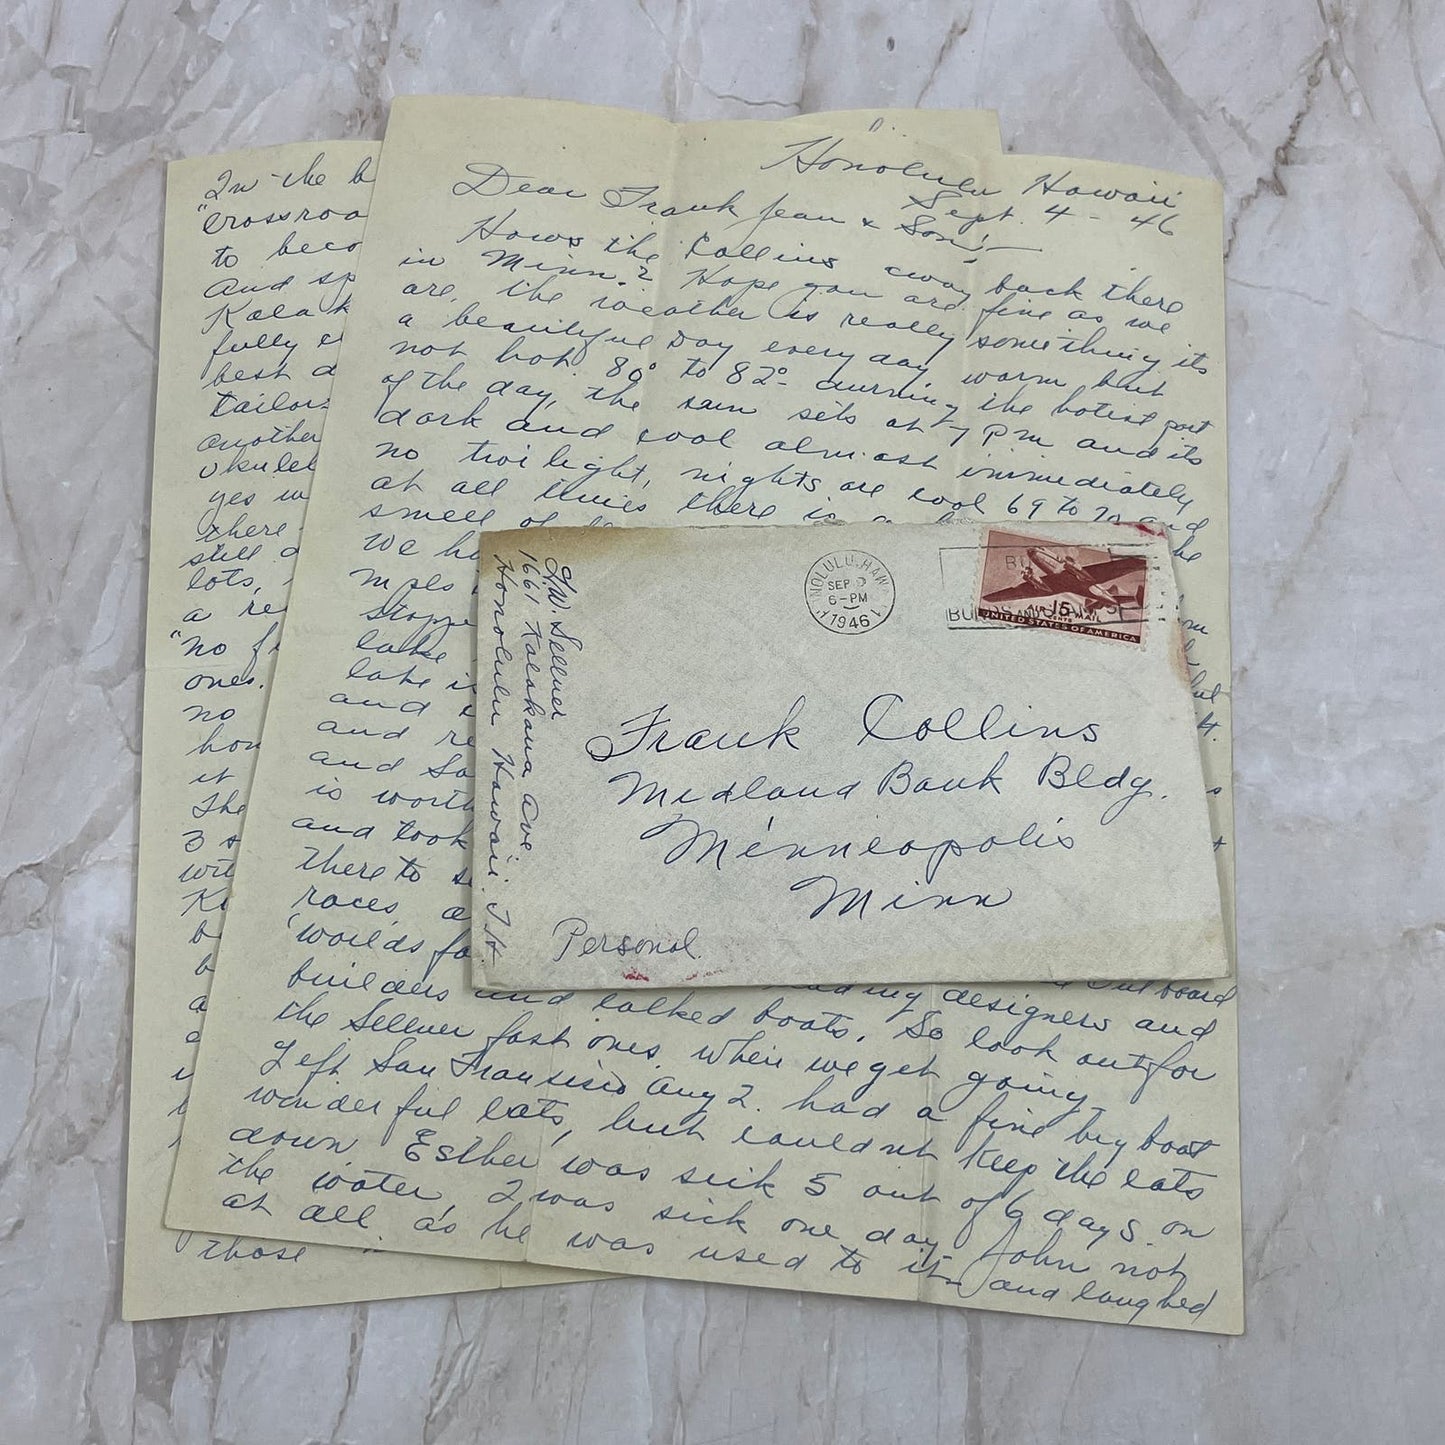 Honolulu Hawaii
Sept. 4 - 46
Dear Frank Jean & Son:-
Hows the Collins away back there
in Minn.? Hope you are fine as we
are, the weather is really something its
a beautiful Day every day, warm but
not hot 80° to 82° - durning the hotest part
of the day, the sun sets at 7 Pm and its
dark and cool almost immediately
no twilight, nights are cool 69 to 70 and
at all times there is a
smell of
We ha
miles
stoppe
lake
lake i
and
and re
and Sa
is worth
and took
there to s
races, a
worlds fa
builders and talked boats. So look out for
leading designers and
outboard
the Sellner fast ones when we get going.
Left San Fransisco Aug 2. had a fine big boat
wonderful eats, but couldnt keep the eats
down Esther was sick 5 out of 6 days on
the water, I was sick one day John not
at all as he was used to it - and laughed
In the b
"Crossroa
to beco
And sp
Kalak
fully e
best d
tailor
another
Ukulel
yes w
there
still a
lots,
a re
"no f
ones.
no
hom
it
The
3 s
wit
K
b
b
a
those
H.W. Sellner
1661 Kalakaua Ave
Honolulu Hawaii. T.H.
HONOLULU, HAW
SEP
6-PM
1946
BU
BONDS AND STAMPS
AIR 15¢ MAIL
UNITED STATES OF AMERICA
Frank Collins
Midland Bank Bldg.
Minneapolis
Minn
Personal.